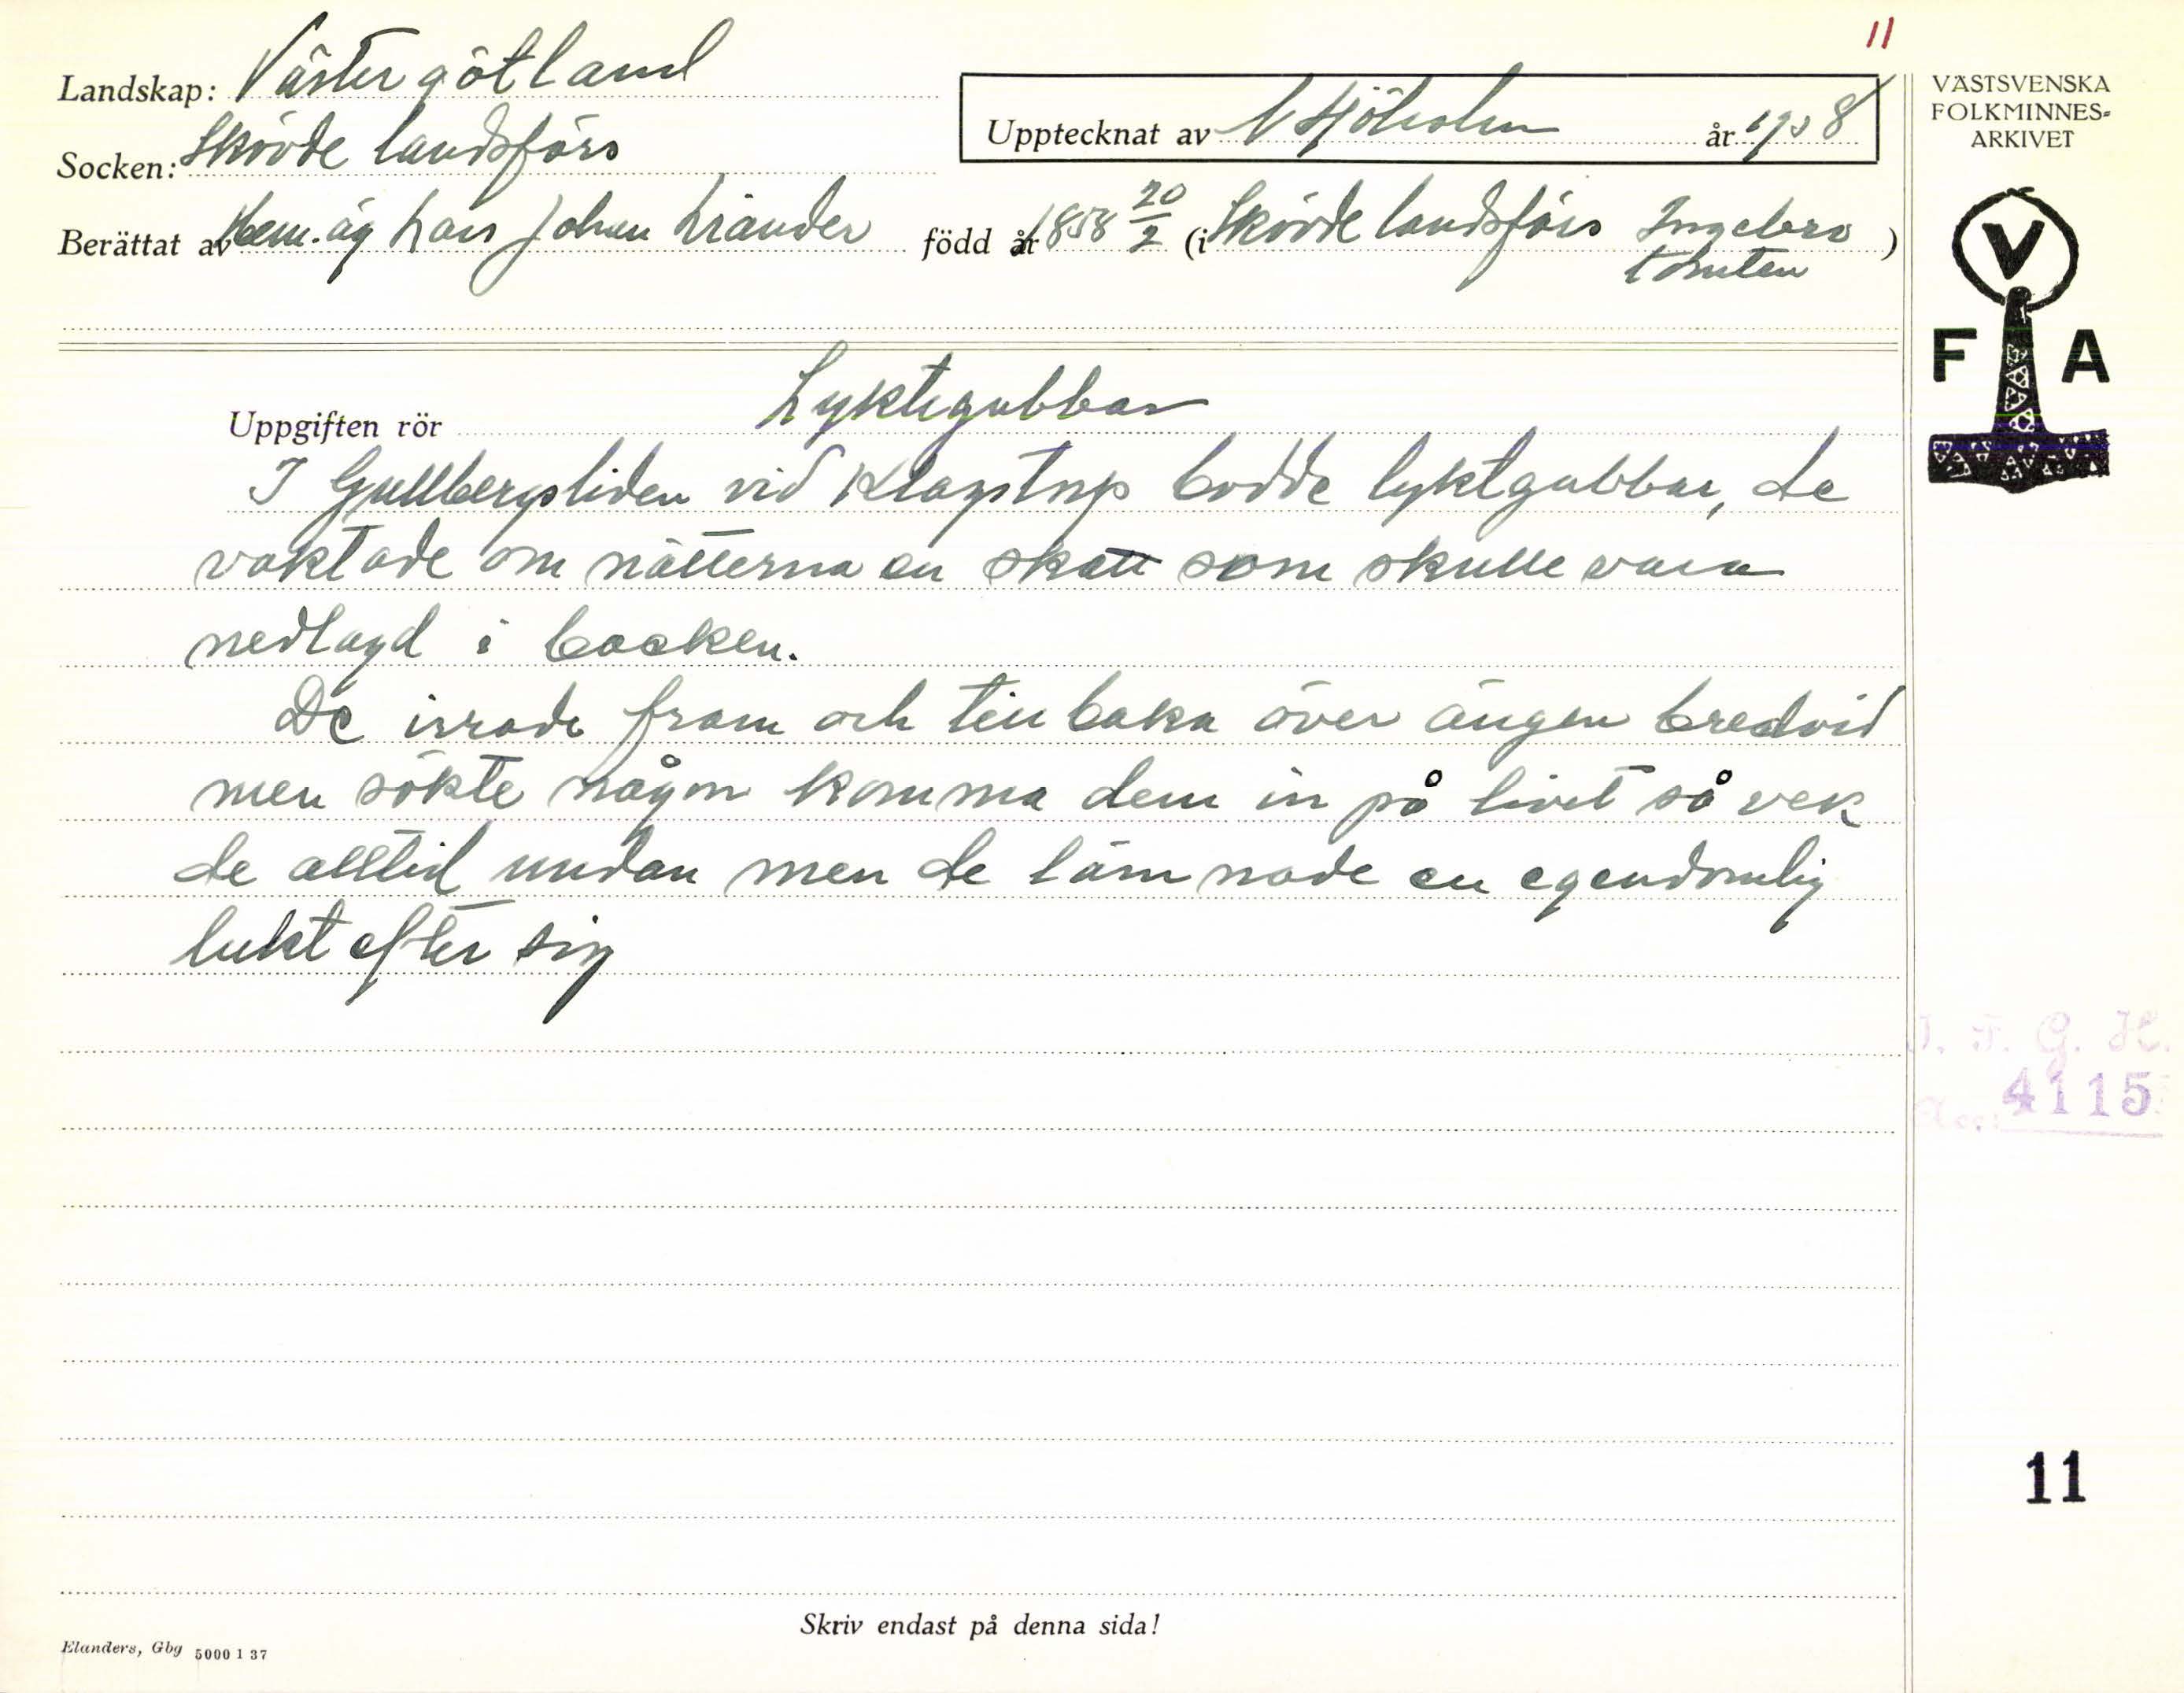 11
Landskap: Västergötland
Socken: Skövde landsförs
Upptecknat av N Sjöholm år 1938
Berättat av Hem. äg Lars Johan Linander född år 1858 20/2 (i Skövde landsförs Ingebro )
tomten
VÄSTSVENSKA
FOLKMINNES-
ARKIVET
V
F A
Uppgiften rör Lyktgubbar
I Gullbergsliden vid Klagstorp bodde lyktgubbar, de
vaktade om nätterna en skatt som skulle vara
nedlagd i backen.
De irrade fram och tillbaka över ängen bredvid
men sökte någon komma dem in på livet så vek
de alltid undan men de lämnade en egendomlig
lukt efter sig
I. F. G. H.
Acc: 4115
11
Skriv endast på denna sida!
Elanders, Gbg 5000 1 37